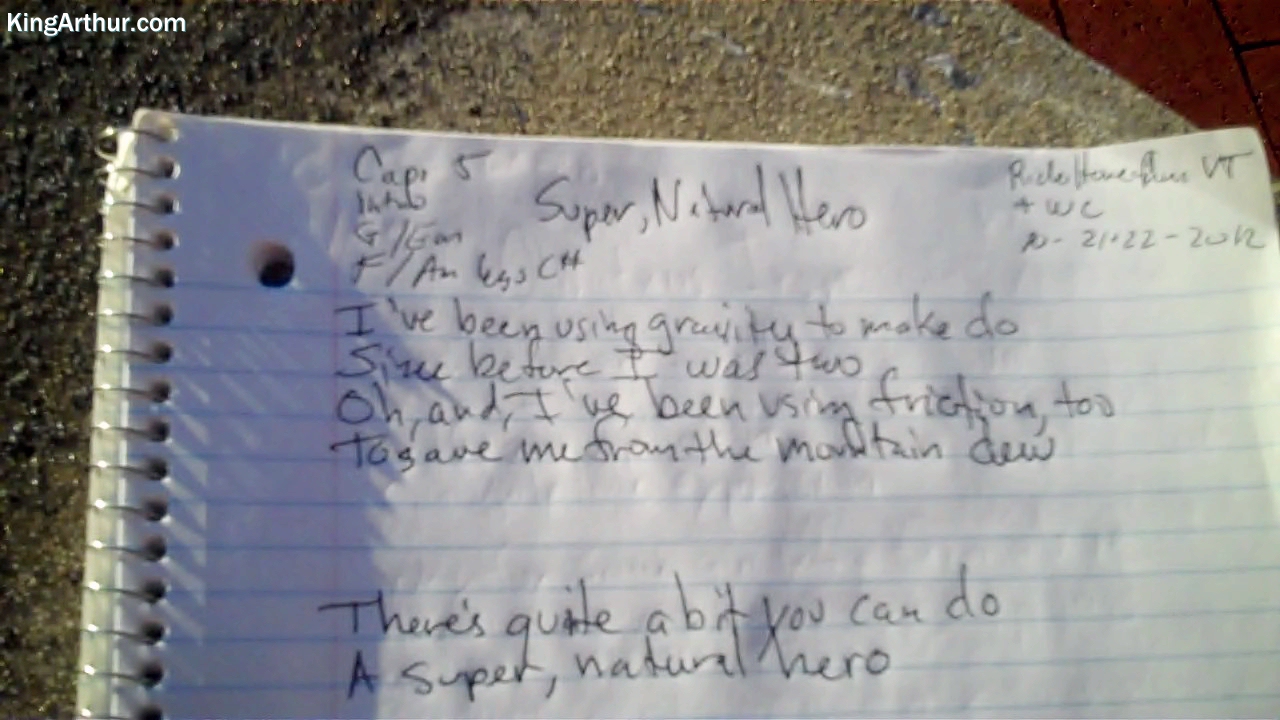 KingArthur.com
Capo 5
Intro
G/Em
F/Am less C#
Super, Natural Hero
Ride Home from VT
+ WC
10-21+22-2012
I've been using gravity to make do
Since before I was two
Oh, and, I've been using friction, too
To save me from the mountain dew
There's quite a bit you can do
A super, natural hero